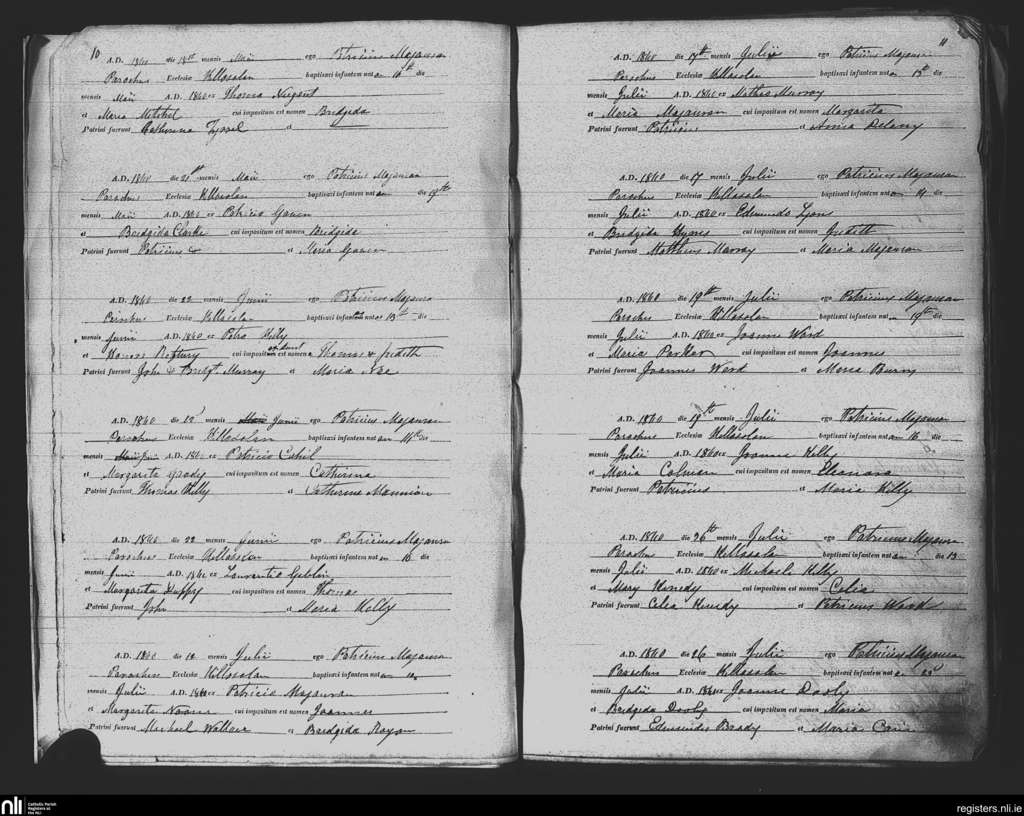 10
A.D. 1860 die 18th mensis Maii ego Patricius
Parochus Ecclesiæ baptisavi infantem nat 16th die
mensis Maii A.D. 1860 ex Thoma Nugent
et Maria Mitchel cui impositum est nomen Bridgida
Patrini fuerunt Catherina et
A.D. 1860 die 20th mensis Maii ego Patricius
Parochus Ecclesiæ baptisavi infantem nat die 19th
mensis Maii A.D. 1860 ex Patricio
et Bridgida Clarke cui impositum est nomen Bridgida
Patrini fuerunt Patricius et Maria
A.D. 1860 die 22 mensis Junii ego Patricius
Parochus Ecclesiæ baptisavi infantem nat 13th die
mensis Junii A.D. 1860 ex Petro Kelly
et Honora cui impositum est nomen Thomas & Judith
Patrini fuerunt John & Bridgt. Murray et Maria Nee
A.D. 1860 die 12 mensis Junii ego Patricius
Parochus Ecclesiæ baptisavi infantem nat die
mensis A.D. 1860 ex Patricio Cahil
et Margarita Grady cui impositum est nomen Catherina
Patrini fuerunt Thomas Kelly et Catherine Mannion
A.D. 1860 die 22 mensis Junii ego Patricius
Parochus Ecclesia baptisavi infantem nat 16 die
mensis Junii A.D. 1860 ex Laurentio Geblin
et Margarita cui impositum est nomen Thomas
Patrini fuerunt John et Maria Kelly
A.D. 1860 die 12 mensis Julii ego Patricius
Parochus Ecclesiæ baptisavi infantem nat
mensis Julii A.D. 1860 ex Patricio
et Margarita cui impositum est nomen Joannes
Patrini fuerunt Michael Wallace et Bridgida
11
A.D. 1860 die 17th mensis Julii ego Patricius
Parochus Ecclesiæ baptisavi infantem nat 15th die
mensis Julii A.D. 1860 ex Murray
et Maria cui impositum est nomen Margarita
Patrini fuerunt Patricius et Anna Delany
A.D. 1860 die 17 mensis Julii ego Patricius
Parochus Ecclesiæ baptisavi infantem nat die
mensis Julii A.D. 1860 ex Edmundo Lyons
et Bridgida Hynes cui impositum est nomen Judith
Patrini fuerunt Matthew Murray et Maria
A.D. 1860 die 19th mensis Julii ego Patricius
Parochus Ecclesiæ baptisavi infantem nat 19th die
mensis Julii A.D. 1860 ex Joanne Ward
et Maria Parker cui impositum est nomen Joannes
Patrini fuerunt Joannes Ward et Maria Burns
A.D. 1860 die 19th mensis Julii ego Patricius
Parochus Ecclesiæ baptisavi infantem nat 16 die
mensis Julii A.D. 1860 ex Joanne Kelly
et Maria Colman cui impositum est nomen Eleanora
Patrini fuerunt Patricius et Maria Kelly
A.D. 1860 die 26th mensis Julii ego Patricius
Parochus Ecclesiæ baptisavi infantem nat die 13
mensis Julii A.D. 1860 ex Michaele Kelly
et Mary Kenedy cui impositum est nomen Celia
Patrini fuerunt Celia Kenedy et Patricius Ward
A.D. 1860 die 26 mensis Julii ego Patricius
Parochus Ecclesiæ baptisavi infantem nat die
mensis Julii A.D. 1860 ex Joanne Dooly
et Bridgida Dooly cui impositum est nomen Maria
Patrini fuerunt Edmundus Brady et Maria
nli
Catholic Parish
Registers at
the NLI
registers.nli.ie